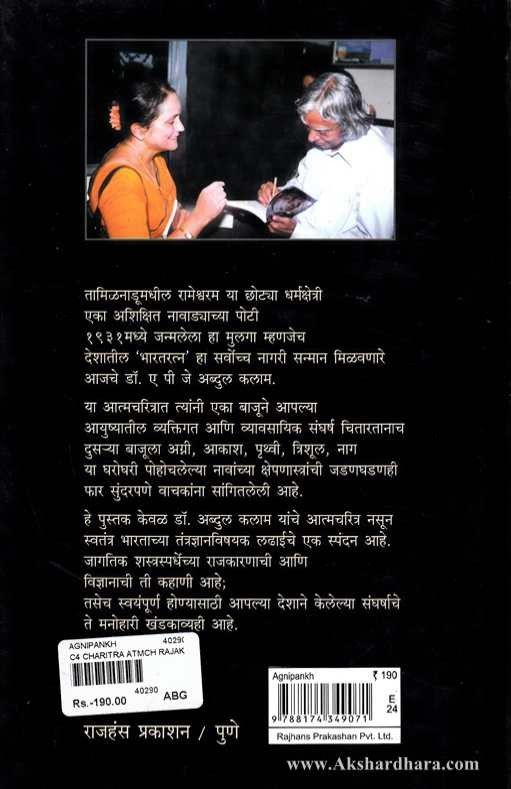 तामिळनाडूमधील रामेश्वरम या छोट्या धर्मक्षेत्री
एका अशिक्षित नावाड्याच्या पोटी
१९३१मध्ये जन्मलेला हा मुलगा म्हणजेच
देशातील 'भारतरत्न' हा सर्वोच्च नागरी सन्मान मिळवणारे
आजचे डॉ. ए पी जे अब्दुल कलाम.
या आत्मचरित्रात त्यांनी एका बाजूने आपल्या
आयुष्यातील व्यक्तिगत आणि व्यावसायिक संघर्ष चितारतानाच
दुसऱ्या बाजूला अग्नी, आकाश, पृथ्वी, त्रिशूल, नाग
या घरोघरी पोहोचलेल्या नावांच्या क्षेपणास्त्रांची जडणघडणही
फार सुंदरपणे वाचकांना सांगितलेली आहे.
हे पुस्तक केवळ डॉ. अब्दुल कलाम यांचे आत्मचरित्र नसून
स्वतंत्र भारताच्या तंत्रज्ञानविषयक लढाईचे एक स्पंदन आहे.
जागतिक शस्त्रस्पर्धेच्या राजकारणाची आणि
विज्ञानाची ती कहाणी आहे;
तसेच स्वयंपूर्ण होण्यासाठी आपल्या देशाने केलेल्या संघर्षाचे
ते मनोहारी खंडकाव्यही आहे.
AGNIPANKH 40290
C4 CHARITRA ATMCH RAJAK
40290
Rs.-190.00 ABG
Agnipankh ₹ 190
E
24
9 788174 349071
Rajhans Prakashan Pvt. Ltd.
राजहंस प्रकाशन / पुणे
www.Akshardhara.com